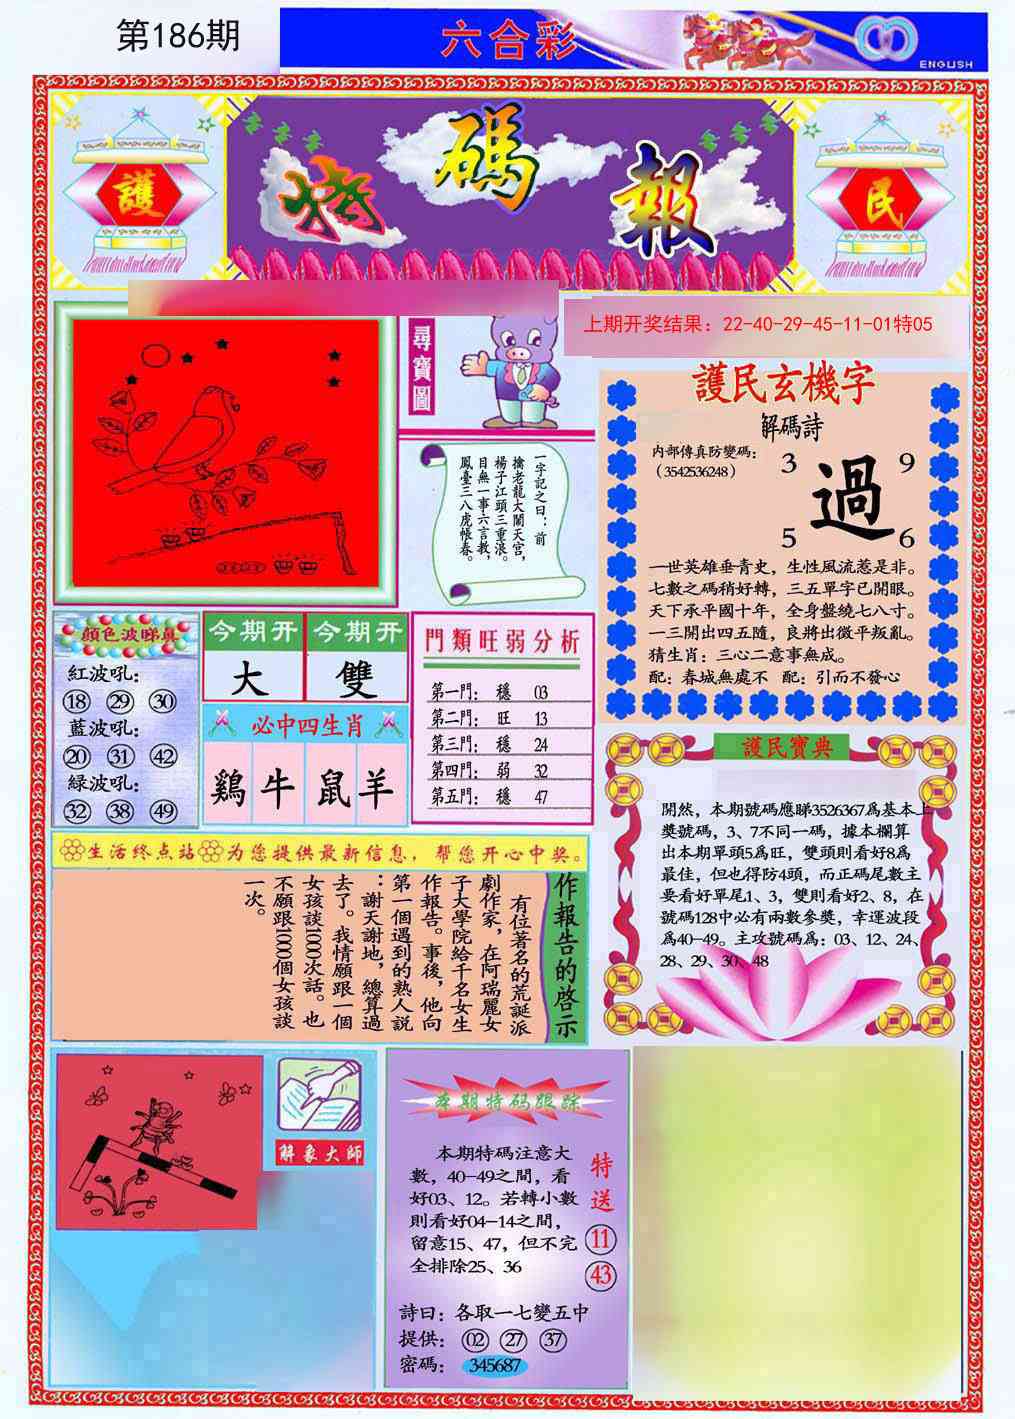 第186期
六合彩
ENGLISH
護
特碼報
民
上期开奖结果：22-40-29-45-11-01特05
尋寶圖
一字記之曰：前
擒老龍大闹天宫，
楊子江頭三重浪。
目無一事六言教，
鳳臺三八虎帳春。
護民玄機字
解碼詩
内部傳真防變碼：
（3542536248）
3
9
過
5
6
一世英雄垂青史，生性風流惹是非。
七數之碼稍好轉，三五單字已開眼。
天下承平國十年，全身盤繞七八寸。
一三開出四五隨，良將出微平叛亂。
猜生肖：三心二意事無成。
配：春城無處不 配：引而不發心
顔色波睇真
紅波吼：
18 29 30
藍波吼：
20 31 42
緑波吼：
32 38 49
今期开 今期开
大 雙
必中四生肖
鷄 牛 鼠 羊
門類旺弱分析
第一門： 穩 03
第二門： 旺 13
第三門： 穩 24
第四門： 弱 32
第五門： 穩 47
護民寶典
開然，本期號碼應睇3526367爲基本上
獎號碼，3、7不同一碼，據本欄算
出本期單頭5爲旺，雙頭則看好8爲
最佳，但也得防4頭，而正碼尾數主
要看好單尾1、3，雙則看好2、8，在
號碼128中必有兩數參獎，幸運波段
爲40-49。主攻號碼爲：03、12、24、
28、29、30、48
生活终点站 为您提供最新信息，帮您开心中奖。
作報告的啓示
有位著名的荒誕派
劇作家，在阿瑞麗女
子大學院給千名女生
作報告。事後，他向
第一個遇到的熟人説
：謝天謝地，總算過
去了。我情願跟一個
女孩談1000次話。也
不願跟1000個女孩談
一次。
解象大師
本期特码跟踪
本期特碼注意大
數，40-49之間，看
好03、12。若轉小數
則看好04-14之間，
留意15、47，但不完
全排除25、36
特送
11
43
詩曰：各取一七變五中
提供： 02 27 37
密碼： 345687